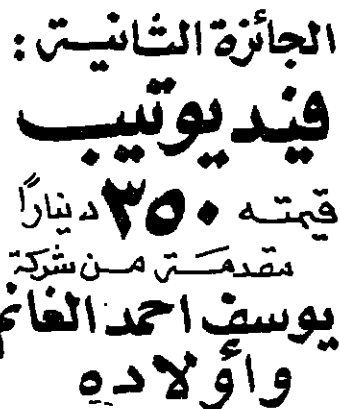 الجائزة الثانية :
فيديوتيب
قيمته ٣٥٠ ديناراً
مقدمة من شركة
يوسف احمد الغانم
وأولاده